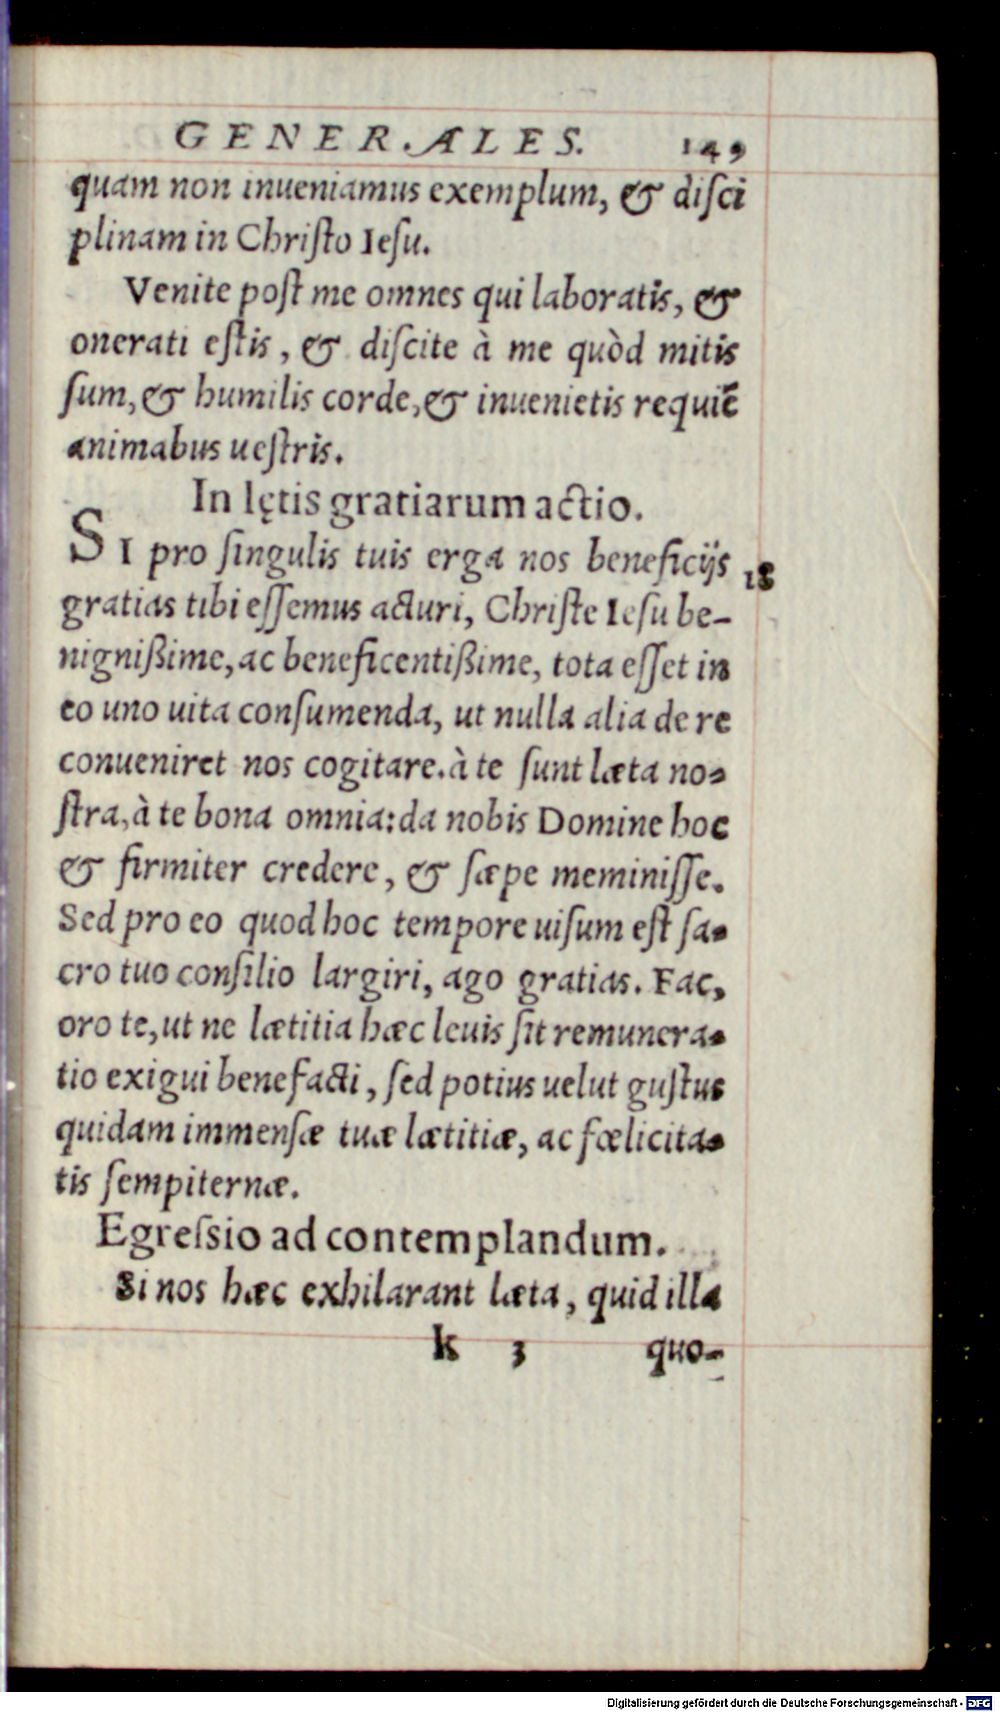 GENERALES. 149
quam non inueniamus exemplum, & diſci
plinam in Chriſto Ieſu.
Venite poſt me omnes qui laboratis, &
onerati eſtis, & diſcite à me quòd mitis
ſum, & humilis corde, & inuenietis requiē
animabus ueſtris.
In lętis gratiarum actio.
SI pro ſingulis tuis erga nos beneficijs 18
gratias tibi eſſemus acturi, Chriſte Ieſu be-
nignißime, ac beneficentißime, tota eſſet in
eo uno uita conſumenda, ut nulla alia de re
conueniret nos cogitare. à te ſunt læta no-
ſtra, à te bona omnia: da nobis Domine hoc
& firmiter credere, & ſæpe meminiſſe.
Sed pro eo quod hoc tempore uiſum eſt ſa-
cro tuo conſilio largiri, ago gratias. Fac,
oro te, ut ne lætitia hæc leuis ſit remunera-
tio exigui benefacti, ſed potius uelut guſtus
quidam immenſæ tuæ lætitiæ, ac fœlicita-
tis ſempiternæ.
Egreſsio ad contemplandum.
Si nos hæc exhilarant læta, quid illa
k 3 quo-
Digitalisierung gefördert durch die Deutsche Forschungsgemeinschaft - DFG